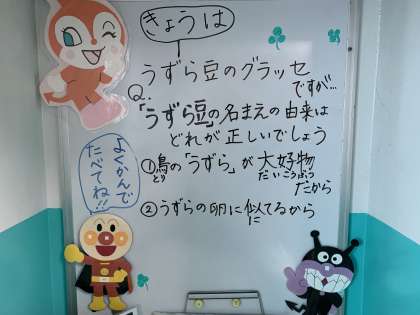 きょうは
うずら豆のグラッセ
ですが…
Q.
「うずら豆」の名まえの由来は
どれが正しいでしょう
①鳥の「うずら」が大好物
とり だいこうぶつ
だから
②うずらの卵に似てるから
に
よくかんで
たべてね!!